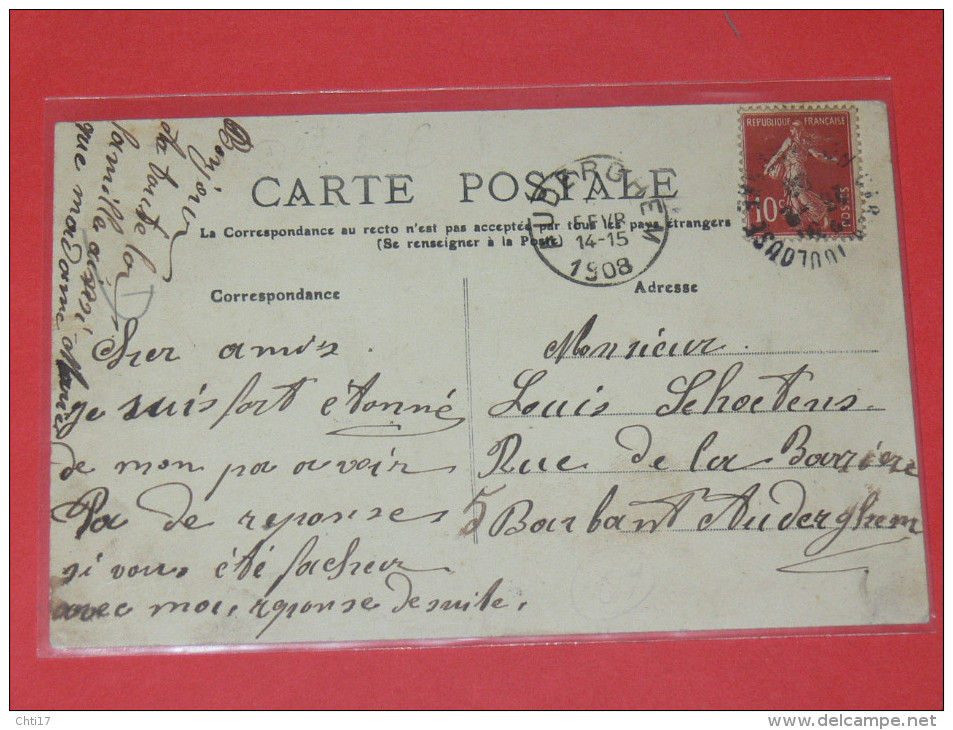 Bonjour
de toute la
famille ainsi
que madame
CARTE POSTALE
La Correspondance au recto n'est pas acceptée par tous les pays étrangers
(Se renseigner à la Poste)
Correspondance
Cher amis.
je suis fort étonné
de mon pa avoir
Pa de reponses
si vous été facheur
avec moi, rponse desuite.
REPUBLIQUE FRANÇAISE
10c
POSTES
TOULOUSE
AUDERGHEM
FEVR
14-15
1908
Adresse
Monsieur.
Louis Schoetens.
Rue de la Barriere
5 Barbant Auderghem
Chti17